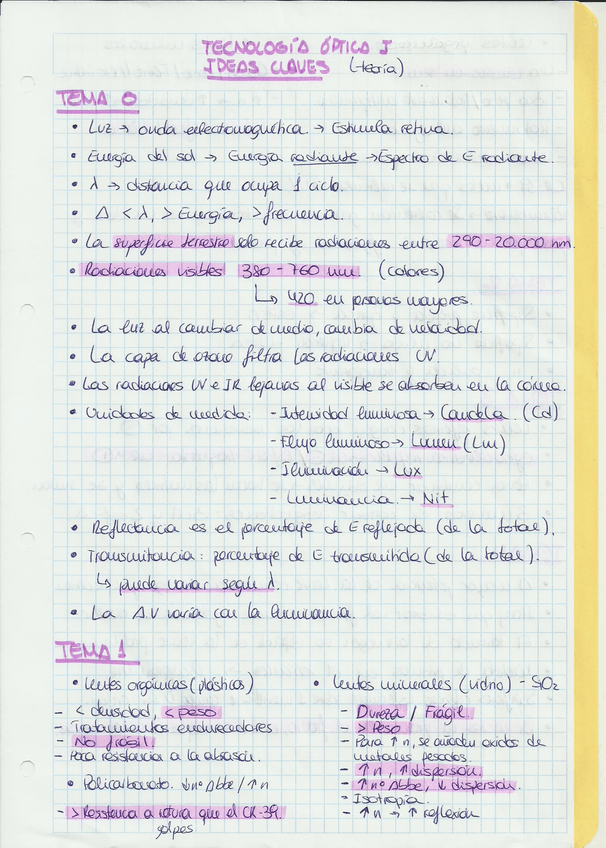 TECNOLOGÍA ÓPTICA I
IDEAS CLAVES (teoría)
TEMA 0
• Luz → onda electromagnética → Estimula retina.
• Energía del sol → Energía radiante → Espectro de E radiante.
• λ → distancia que ocupa 1 ciclo.
• Δ < λ, > Energía, > frecuencia.
• La superficie terrestre solo recibe radiaciones entre 290-20.000 nm.
• Radiaciones visibles 380-760 nm. (colores)
↳ 420 en personas mayores.
• La luz al cambiar de medio, cambia de velocidad.
• La capa de ozono filtra las radiaciones UV.
• Las radiaciones UV e IR lejanas al visible se absorben en la córnea.
• Unidades de medida: - Intensidad luminosa → Candela. (Cd)
- Flujo luminoso → Lumen (Lm)
- Iluminación → Lux
- Luminancia. → Nit
• Reflectancia es el porcentaje de E reflejada (de la total).
• Transmitancia: porcentaje de E transmitida (de la total).
↳ puede variar según λ.
• La A.V varía con la luminancia.
TEMA 1
• Lentes orgánicas (plásticos)
- < densidad, < peso
- Tratamientos endurecedores
- No frágil.
- Para resistencia a la abrasión.
• Policarbonato. ↓ nº Abbe / ↑ n
- > Resistencia a rotura que el CR-39.
golpes
• Lentes minerales (vidrio) - SiO2
- Dureza / Frágil.
- > Peso
- Para ↑ n, se añaden óxidos de
metales pesados.
- ↑ n, ↑ dispersión.
- ↑ nº Abbe, ↓ dispersión.
- Isotropía.
- ↑ n → ↑ reflexión